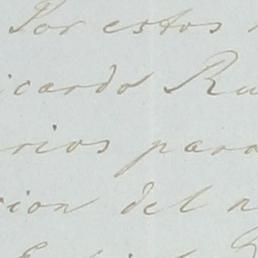 Por estos
icardo Ru
rios para
cion del n